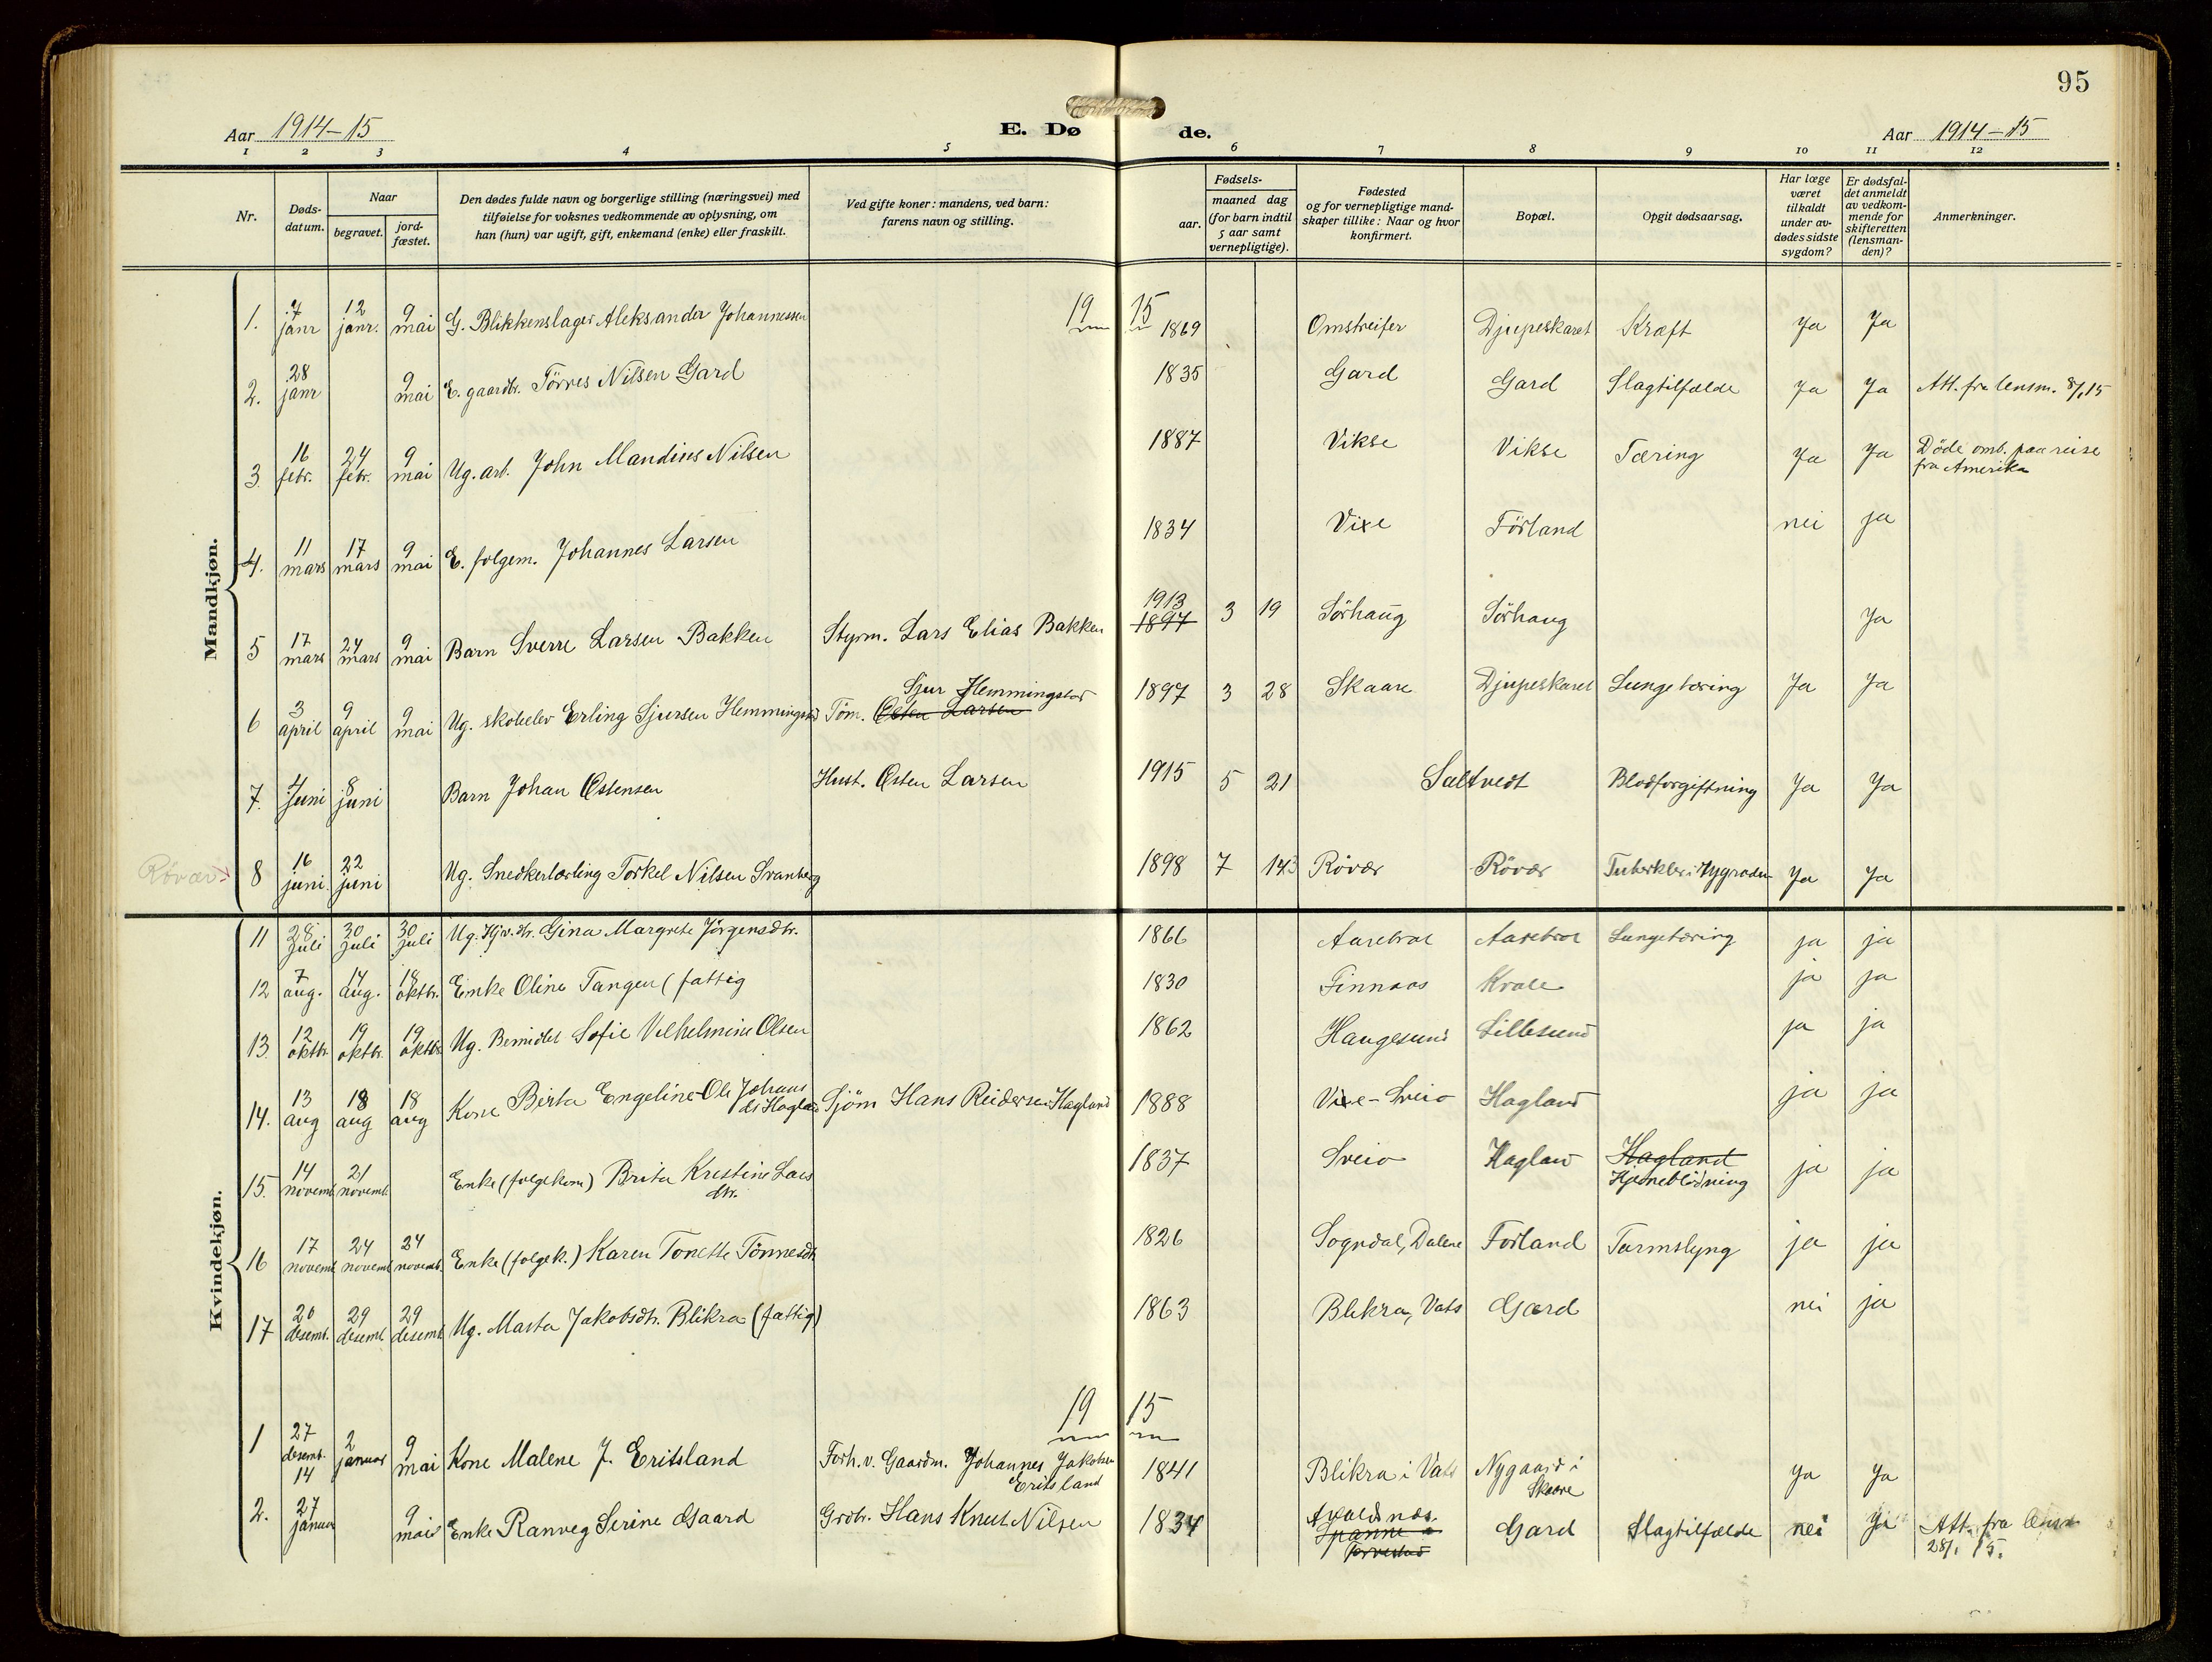 95
Aar 1914–15
E. Døde.
Aar 1914–15
1 2 3 4 5 6 7 8 9 10 11 12
Nr.
Døds-
datum.
Naar
begravet.
jord-
fæstet.
Den dødes fulde navn og borgerlige stilling (næringsvei) med
tilføielse for voksnes vedkommende av oplysning, om
han (hun) var ugift, gift, enkemand (enke) eller fraskilt.
Ved gifte koner: mandens, ved barn:
farens navn og stilling.
Fødsels-
aar.
maaned dag
(for barn indtil
5 aar samt
vernepligtige).
Fødested
og for vernepligtige mand-
skaper tillike: Naar og hvor
konfirmert.
Bopæl.
Opgit dødsaarsag.
Har læge
været
tilkaldt
under av-
dødes sidste
sygdom?
Er dødsfal-
det anmeldt
av vedkom-
mende for
skifteretten
(lensman-
den)?
Anmerkninger.
Mandkjøn.
19 15
1. 7 janr 12 janr. 9 mai G. Blikkenslager Aleksander Johannessen 1869 Omstreifer Djupeskaret Kræft Ja Ja
2. 28 janr 9 mai E. gaardbr. Törres Nilsen Gard 1835 Gard Gard Slagtilfælde Ja Ja Att. fra lensm. 8/1 15
3. 16 febr. 24 febr. 9 mai Ug. arb. John Mandius Nilsen 1887 Vikse Vikse Tæring Ja Ja Döde omb. paa reise
fra Amerika
4. 11 mars 17 mars 9 mai E. folgem. Johannes Larsen 1834 Vixe Förland nei ja
5 17 mars 24 mars 9 mai Barn Sverre Larsen Bakken Styrm. Lars Elias Bakken 1913 1897 3 19 Sörhaug Sörhaug Ja
6 3 april 9 april 9 mai Ug. skoleelev Erling Sjursen Hemmingstad Töm. Östen Larsen Sjur Hemmingstad 1897 3 28 Skaare Djupeskaret Lungetæring Ja Ja
7. 4 Juni 8 juni Barn Johan Østensen Hust. Østen Larsen 1915 5 21 Saltvedt Blodforgiftning Ja Ja
Rövær 8 16 juni 22 juni Ug. Snedkerlærling Torkel Nilsen Svanberg 1898 7 Rövær Rövær Tuberkler i Ja Ja
Kvindekjøn.
11 28 Juli 30 juli 30 juli Ug. Gina Margrete Jörgensdtr. 1866 Lungetæring ja ja
12 7 aug. 14 aug. 18 oktbr. Enke Oline Tangen (fattig 1830 Finnaas Kvale ja ja
13. 12 oktbr. 19 oktbr. 19 oktbr. Ug. Bemidlet Sofie Vilhelmine Olsen 1862 Haugesund Lillesund ja ja
14. 13 aug 18 aug 18 aug Kone Birta Engeline Johans
Hagland Sjöm Hans Reidersen Hagland 1888 Vixe–Sveio Hagland ja ja
15. 14 novemb. 21 novemb. Enke (folgekone) Brita Kristine Lars
dtr. 1837 Sveio Haglan Hagland
Hjerneblödning ja ja
16 17 novemb. 24 novemb. 24 novemb. Enke (folgek.) Karen Tonette Tönnesdtr. 1826 Sogndal, Dalene Forland Tarmslyng ja ja
17 20 desemb. 29 desemb. 29 desemb. Ug. Marta Jakobsdtr. Blikra (fattig) 1863 Blikra, Vats Gard nei ja
19 15
1 27 desemb. 14 2 januar 9 mai Kone Malene J. Eritsland Forh. v. Gaardm. Johannes Jakobsen
Eritsland 1841 Blikra i Vats Nygaard i
Skaare Ja Ja
2. 27 januar 9 mai Enke Ranveg Serine Gaard Grdbr. Hans Knut Nilsen 1834 Avaldsnes.
Spanne
Torvestad Gard Slagtilfælde nei Ja Att. fra lensm
28/1 15.